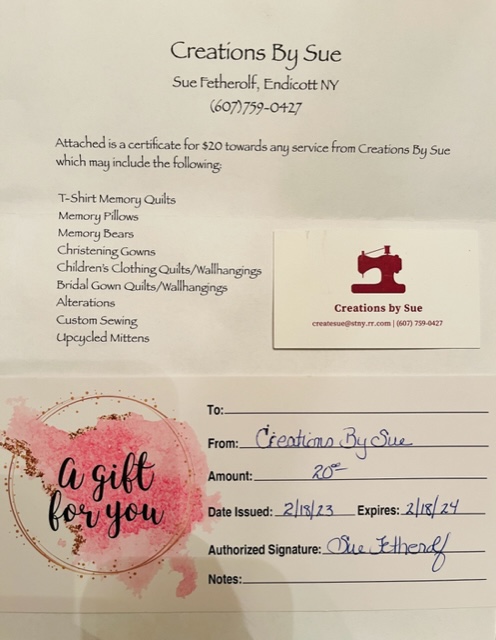 Creations By Sue
Sue Fetherolf, Endicott NY
(607)759-0427
Attached is a certificate for $20 towards any service from Creations By Sue
which may include the following:
T-Shirt Memory Quilts
Memory Pillows
Memory Bears
Christening Gowns
Children's Clothing Quilts/Wallhangings
Bridal Gown Quilts/Wallhangings
Alterations
Custom Sewing
Upcycled Mittens
Creations by Sue
createsue@stny.rr.com | (607) 759-0427
a gift
for you
To:
From: Creations By Sue
Amount: 20⁰⁰
Date Issued: 2/18/23 Expires: 2/18/24
Authorized Signature: Sue Fetherolf
Notes: